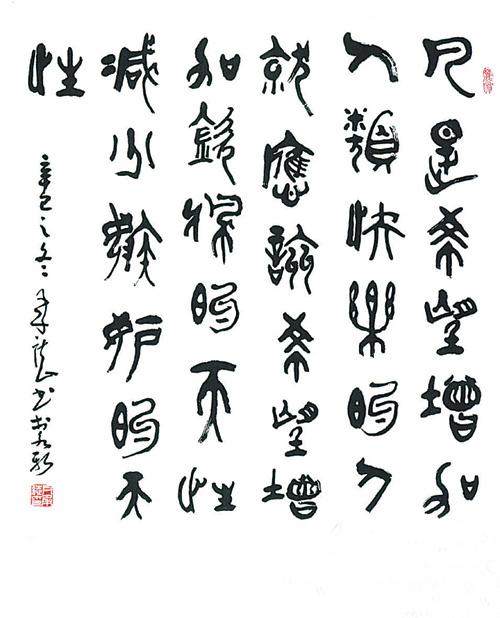 凡是希望增加
人類快樂的人
就應該希望增
加欽佩的天性
減少嫉妒的天
性
辛巳之冬